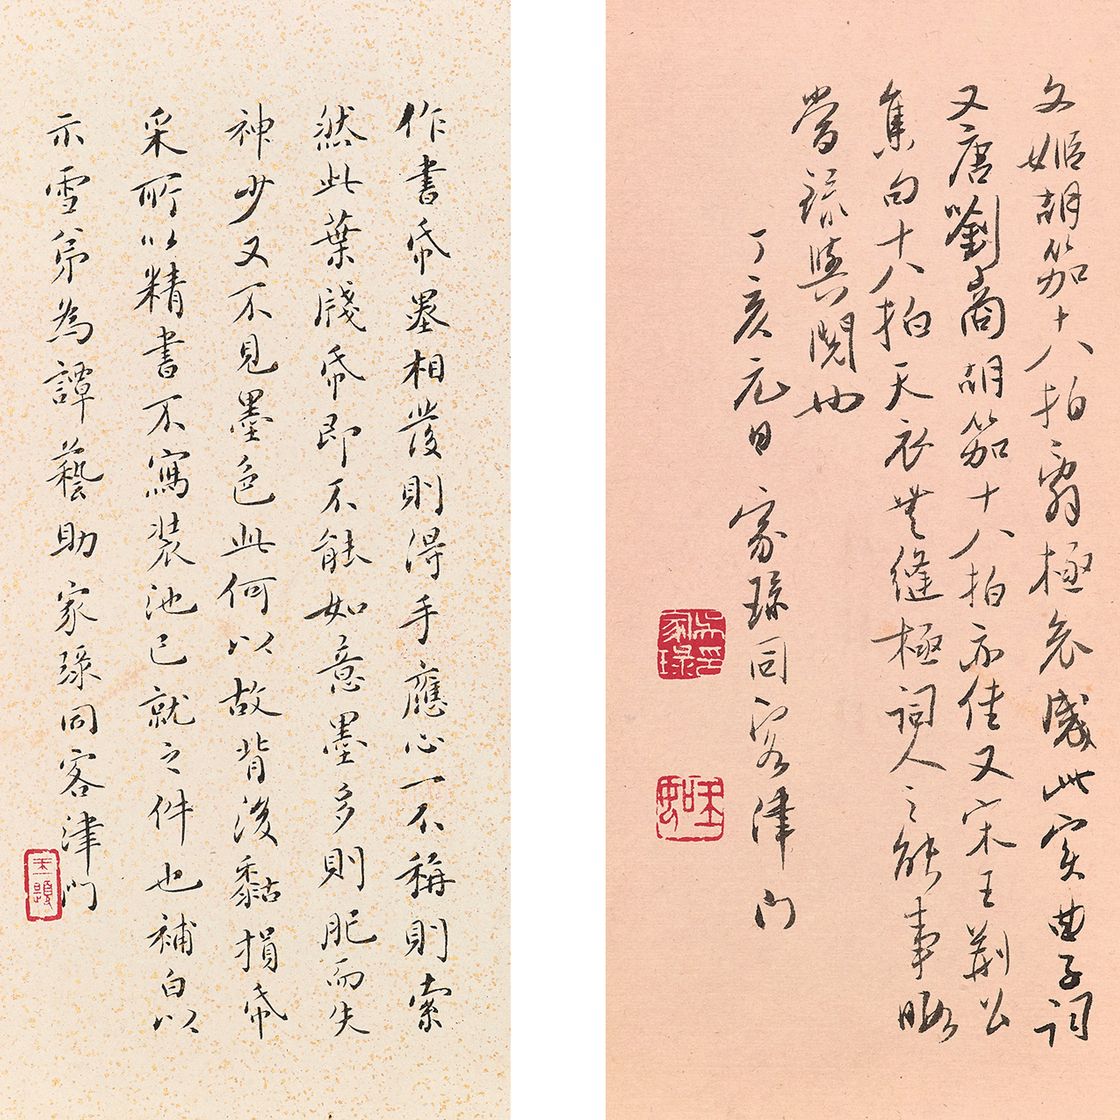 文姬胡笳十八拍極哀感此實曲子詞
又唐劉商胡笳十八拍亦佳又宋王荊公
集句十八拍天衣無縫極詞人之能事暇
當錄與閱也
丁亥元日 家琭同客津門
吳家琭印
作書帋墨相發則得手應心一不稱則索
然此葉牋帋即不能如意墨多則肥而失
神少又不見墨色此何以故背後黏損帋
采所以精書不寫裝池已就之件也補白以
示雪弟為譚藝助家琭同客津門